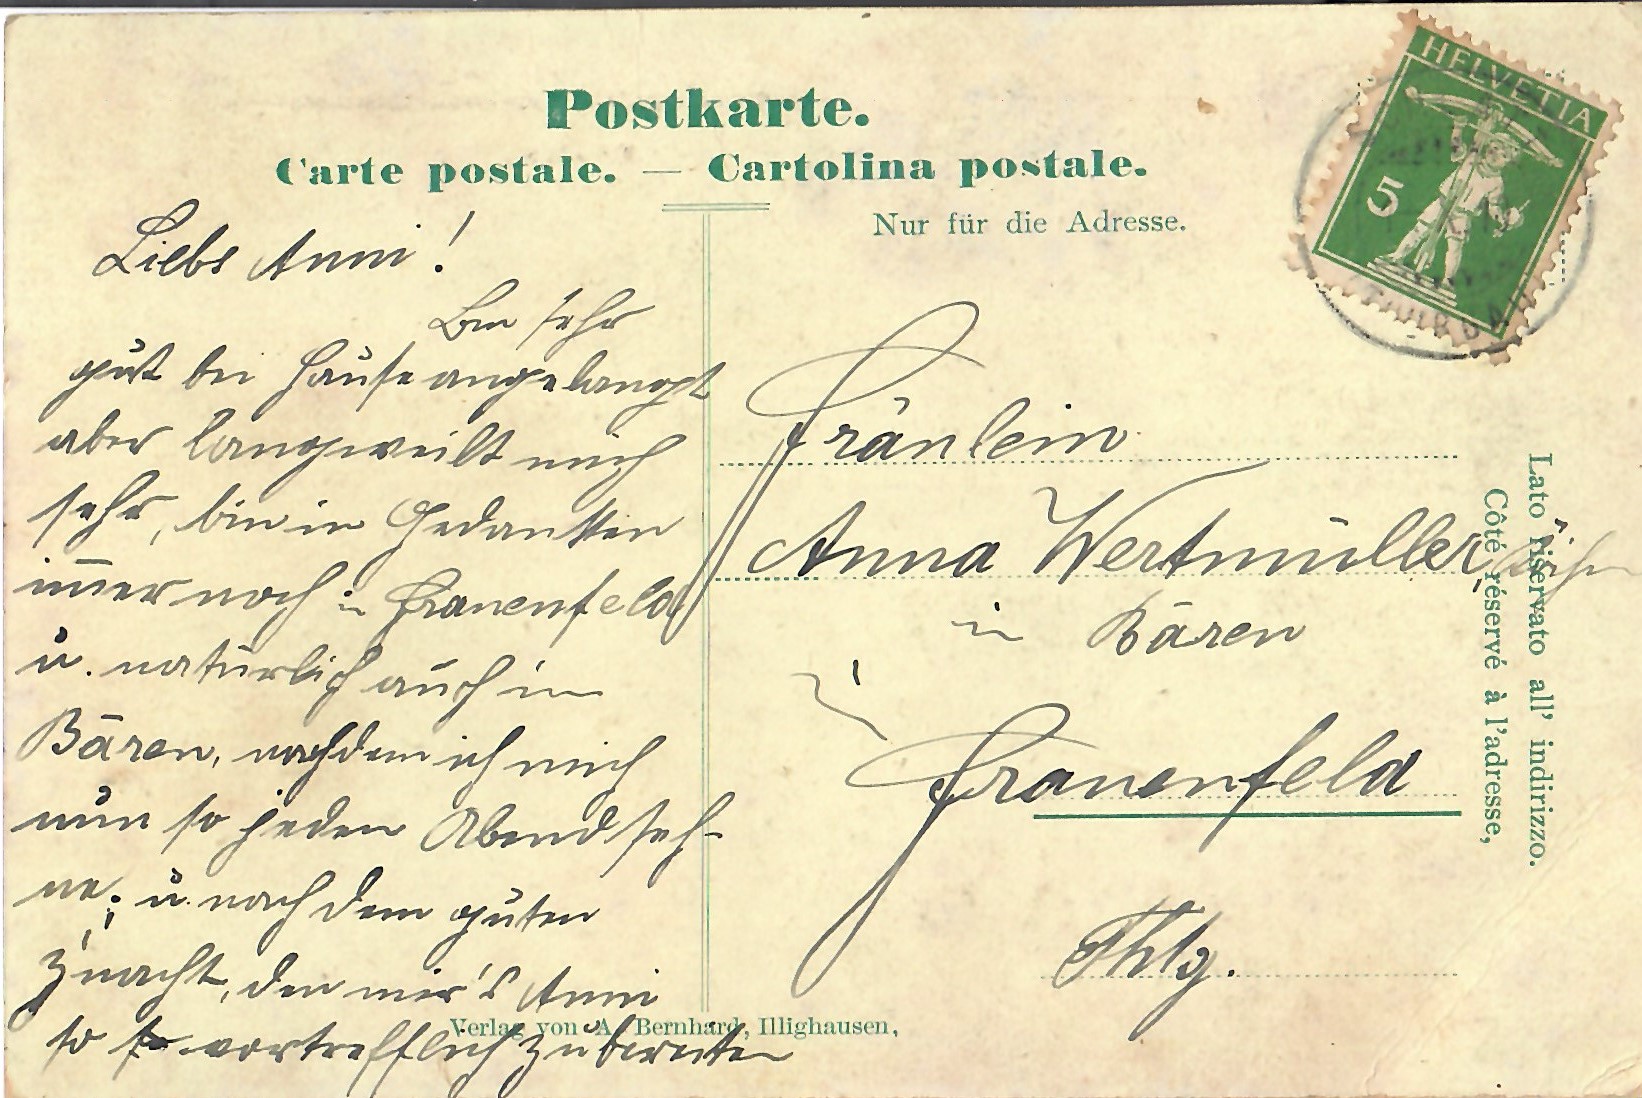 Postkarte.
Carte postale. — Cartolina postale.
Nur für die Adresse.
HELVETIA
5
Liebs Anni!
Bin sehr
gut bei Hause angelangt
aber langweilt mich
sehr, bin in Gedankken
immer noch in Frauenfeld
u. natürlich auch im
Bären, nachdem ich mich
nun so jeden Abend seh-
ne; u. nach dem guten
z'nacht, den mir's Anni
so vortrefflich zubereiten
Fräulein
Anna Wertmüller,
in Bären
in
Frauenfeld
Thlg.
Lato riservato all' indirizzo.
Côté réservé à l'adresse,
Verlag von A. Bernhard, Illighausen,